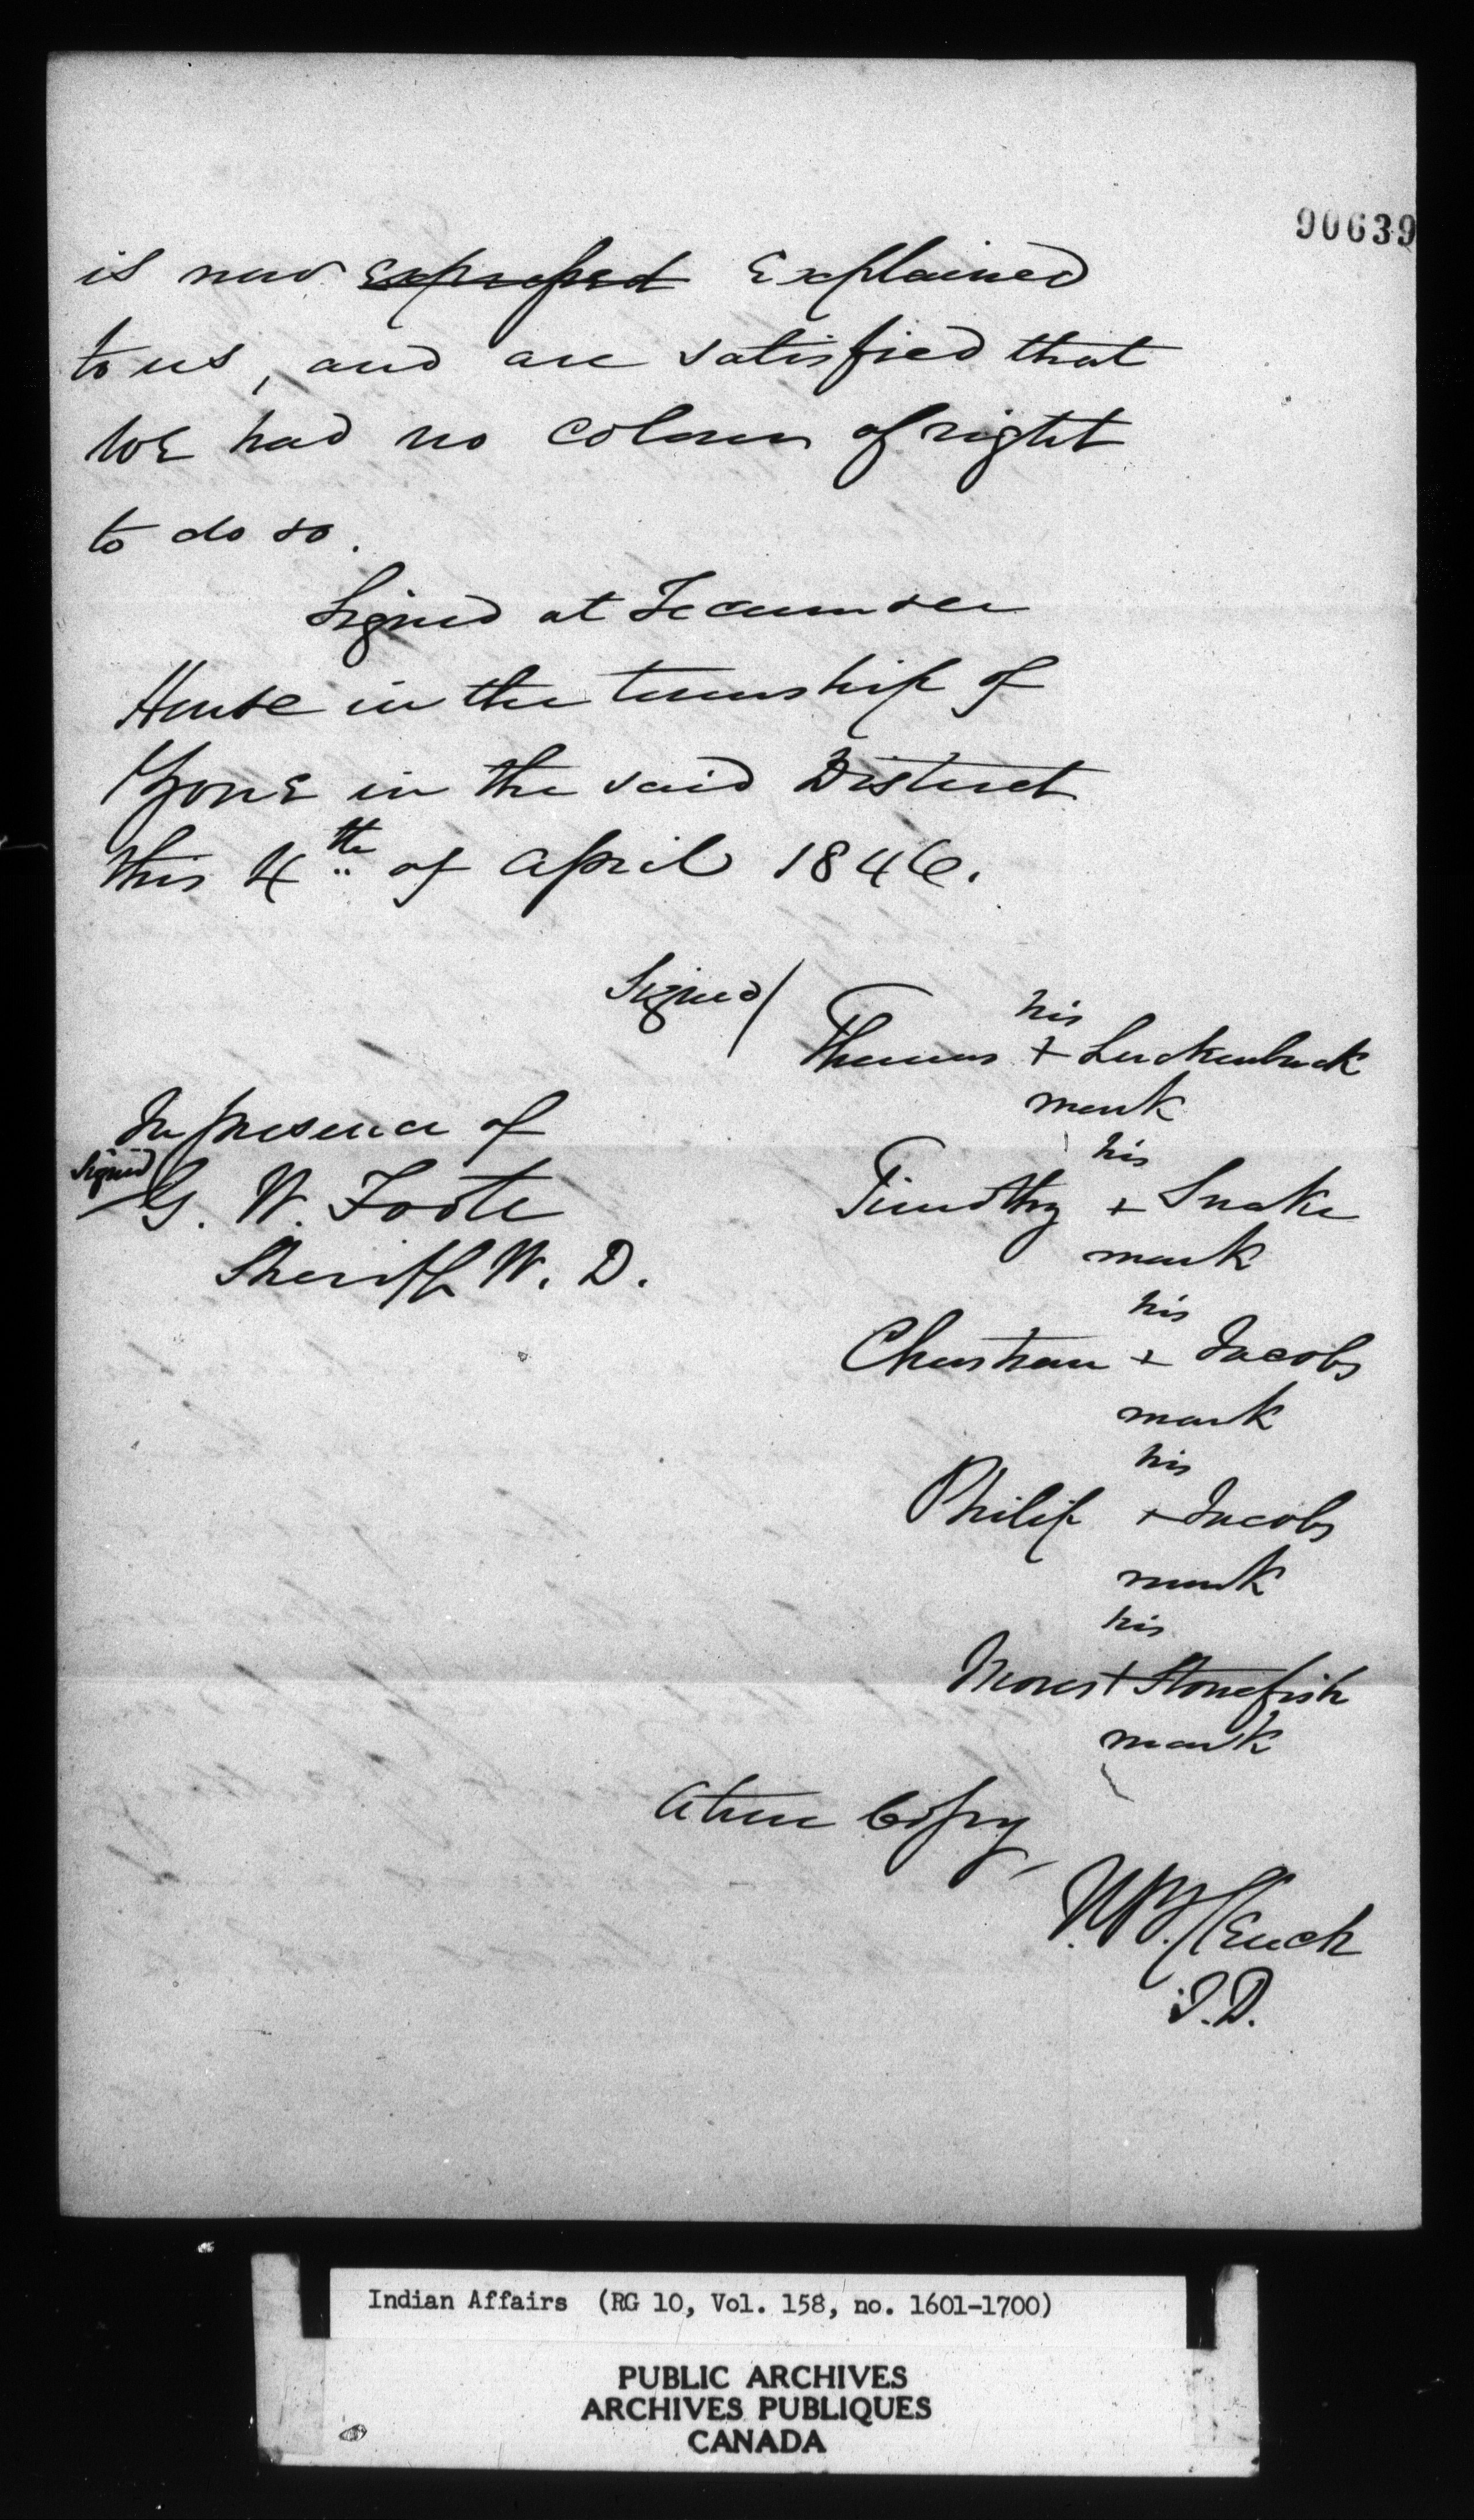 90639
is now expressed Explained
to us, and are satisfied that
we had no colour of right
to do so.
Signed at Tecumseh
House in the township of
Zone in the said District
this 4th of April 1846.
Signed/
his
Thomas + Luckenback
mark
In presence of
Signed
G. W. Foote
Sheriff W. D.
his
Timothy + Snake
mark
his
Christian + Jacobs
mark
his
Philip + Jacobs
mark
his
Moses + Stonefish
mark
A true Copy
J. B. Clench
Indian Affairs (RG 10, Vol. 158, no. 1601-1700)
PUBLIC ARCHIVES
ARCHIVES PUBLIQUES
CANADA